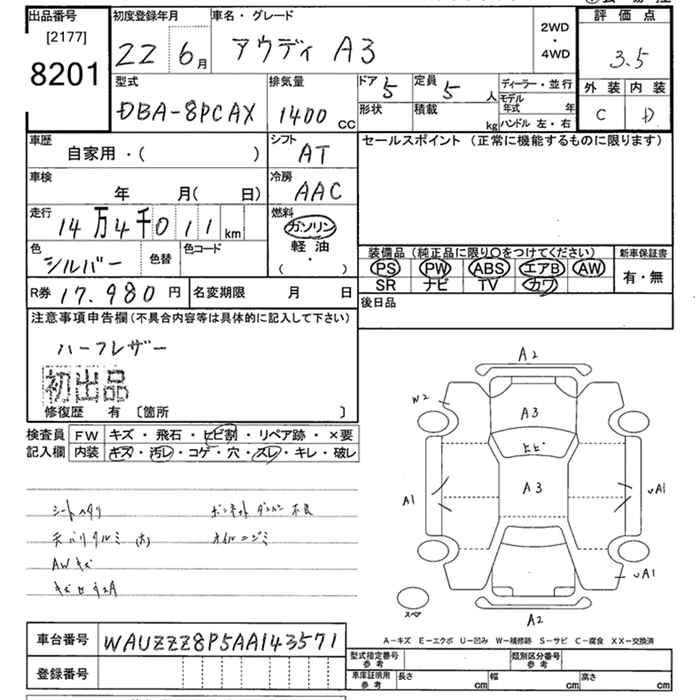 出品番号 初度登録年月 車名・グレード 2WD・4WD 評価点
[2177]
8201 22 6月 アウディ A3 3.5
型式 排気量 ドア 5 定員 5 人 ディーラー・並行 外装 内装
DBA-8PCAX 1400cc 形状 積載 kg モデル年式 年 C D
ハンドル 左・右
車歴 シフト セールスポイント（正常に機能するものに限ります）
自家用・( ) AT
車検 冷房
年 月( 日) AAC
走行 燃料
14万4千011km ガソリン
軽油
色 色替 色コード ・( )
シルバー
装備品（純正品に限り○をつけてください） 新車保証書
PS PW ABS エアB AW 有・無
SR ナビ TV カワ
R券 17.980円 名変期限 月 日 後日品
注意事項申告欄(不具合内容等は具体的に記入して下さい)
ハーフレザー
初出品
修復歴 有 〔箇所 〕
検査員 FW キズ・飛石・ヒビ割・リペア跡・×要
記入欄 内装 キズ・汚レ・コゲ・穴・スレ・キレ・破レ
シートヘタリ
AWキズ
オイルニジミ
A2
W2
A3
ヒビ
A1 A3 ᴗA1
ᴗA1
スペア
A2
A－キズ E－エクボ U－凹み W－補修跡 S－サビ C－腐食 XX－交換済
車台番号 WAUZZZ8P5AA143571
型式指定番号 参考 類別区分番号 参考
登録番号
車庫証明用 参考 長さ cm 幅 cm 高さ cm